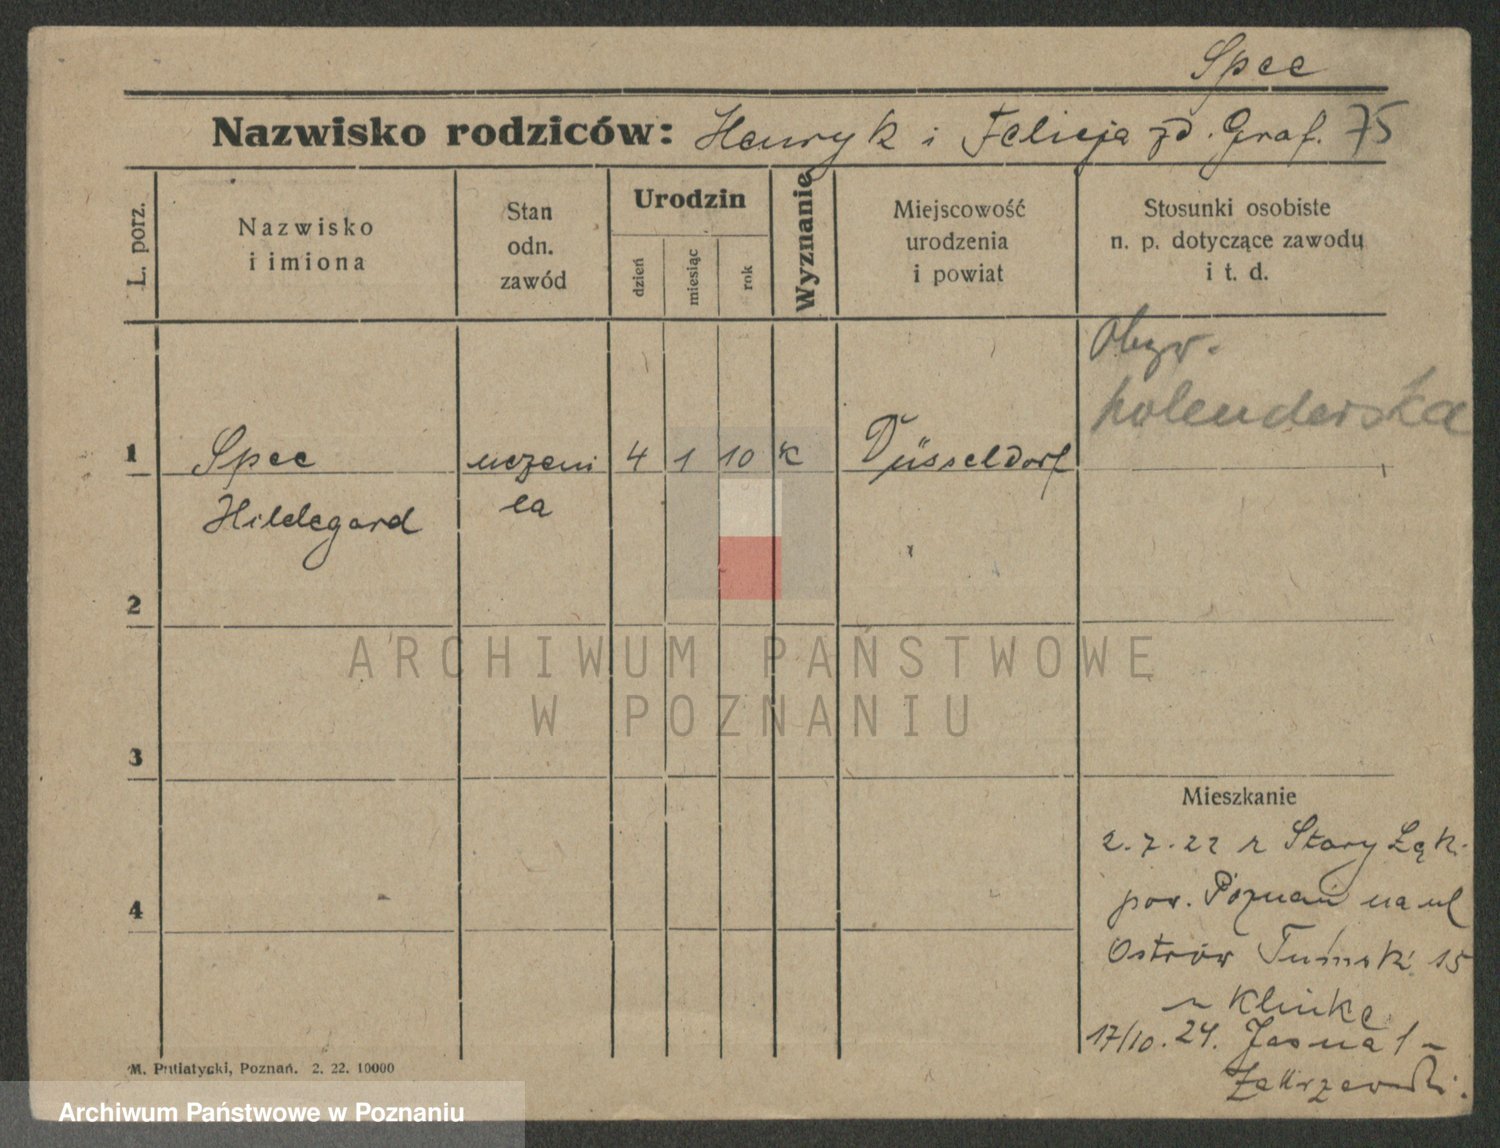 Spee
Nazwisko rodziców: Henryk i Felicja zd. Graf. 75
L. porz.
Nazwisko
i imiona
Stan
odn.
zawód
Urodzin
dzień
miesiąc
rok
Wyznanie
Miejscowość
urodzenia
i powiat
Stosunki osobiste
n. p. dotyczące zawodu
i t. d.
Obyw.
holenderska
1 Spee uczeni 4 1 10 K Düsseldorf
Hildegard
2
3
Mieszkanie
2.7.22 z Stary
4
pow. Poznań na ul
Ostrów Tumski 15
Klinke
17/10.24. Jasna 1
Zakrzewski.
M. Putiatycki, Poznań. 2. 22. 10000
ARCHIWUM PAŃSTWOWE
W POZNANIU
Archiwum Państwowe w Poznaniu